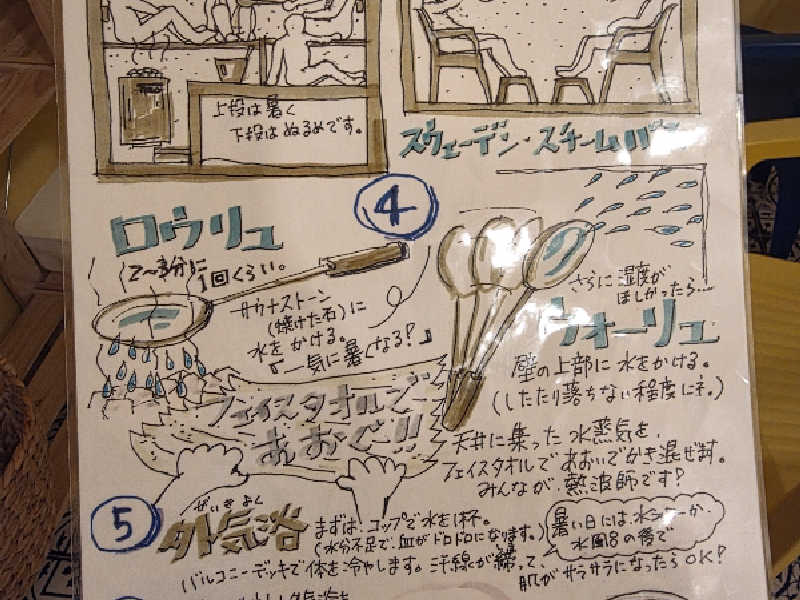 上段は暑く
下段はぬるめです。
スウェーデン・スチームバス
④
ロウリュ
1回くらい。
サウナストーン
(焼けた石)に
水をかける。
『一気に暑くなる!』
さらに湿度が
ほしかったら…
ウォーリュ
壁の上部に水をかける。
(したたり落ちない程度にネ。)
フェイスタオルで
あおぐー!!
天井に集った水蒸気を、
フェイスタオルであおいでかき混ぜます。
みんなが、熱波師です!
⑤
がいきよく
外気浴
まずは、コップで水を1杯。
(水分不足で、血がドロドロになります。)
バルコニーデッキで体を冷やします。汗線が締って、
肌がサラサラになったらOK!
暑い日には、水シャワーか、
水風呂の後で